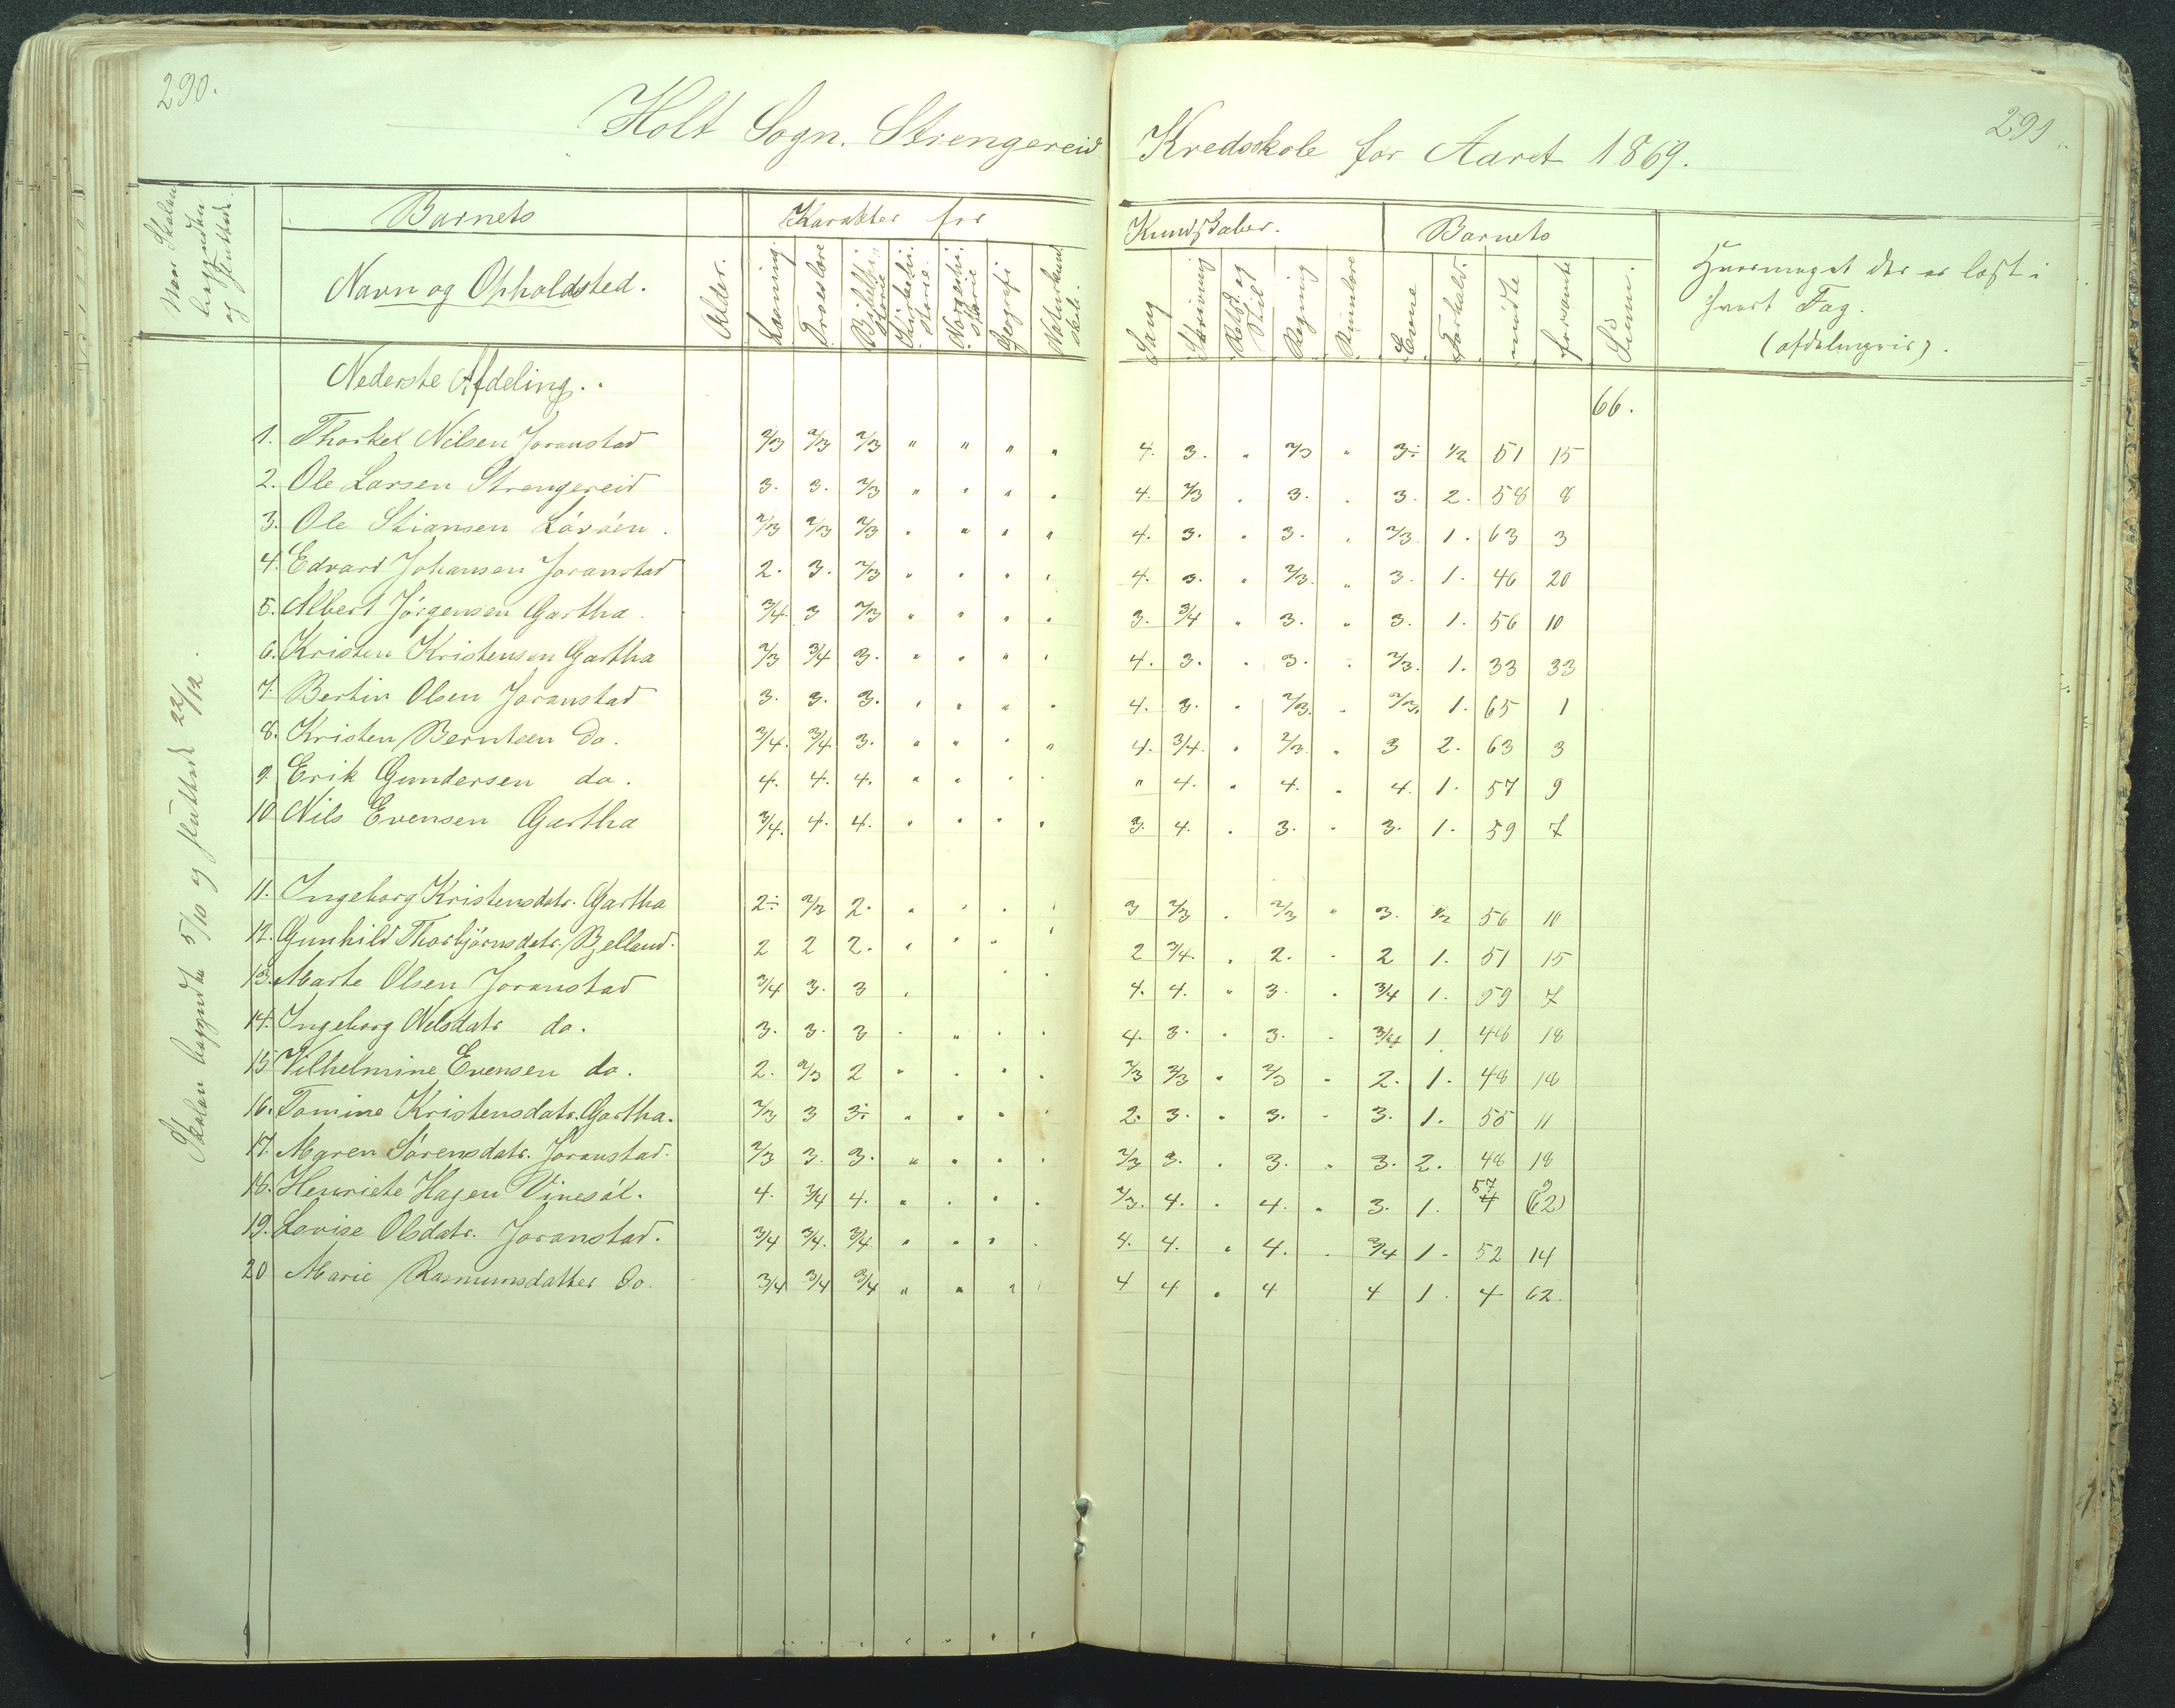 290.
291
Holt Sogn. Strengereid Kredsskole for Aaret 1869.
Naar Skolen begyndte og sluttede.
Barnets
Navn og Opholdsted.
Alder.
Karakter for Kundskaber.
Læsning
Troeslære
Bibelhistorie
Kirkehistorie.
Norgeshistorie
Geografi
Naturkundskab.
Sang
Skrivning
Retsk. og Stil
Regning
Barnets
Evne
Forhold.
mødte
forsømte
Sum.
Hvormeget der er læst i
hvert Fag.
(afdelingvis).
Skolen begyndte 5/10 og sluttede 22/12.
Nederste Afdeling. 66.
1. Thorkel Nilsen Joranstad 2/3 2/3 2/3 " " " " 4. 3. " 2/3 " 3÷ 1/2 51 15
2. Ole Larsen Strengereid 3. 3. 2/3 " " " " 4. 2/3 " 3. " 3. 2. 58 8
3. Ole Stiansen Lövåen. 2/3 2/3 2/3 " " " " 4. 3. " 3. " 2/3 1. 63 3
4. Edvard Johansen Joranstad 2. 3. 2/3 " " " " 4. 3. " 2/3. " 3. 1. 46 20
5. Albert Jörgensen Gartha. 3/4. 3 2/3 " " " " 3. 3/4 " 3. " 3. 1. 56 10
6. Kristen Kristensen Gartha 2/3 3/4 3. " " " " 4. 3. " 3. " 2/3. 1. 33 33
7. Bertin Olsen Joranstad 3. 3. 3. " " " " 4. 3. " 2/3. " 2/3. 1. 65 1
8. Kristen Berntsen do. 3/4. 3/4. 3. " " " " 4. 3/4. " 2/3. " 3 2. 63 3
9. Erik Gundersen do. 4. 4. 4. " " " " " 4. " 4. " 4. 1. 57 9
10 Nils Evensen Gartha 3/4. 4. 4. " " " " 3. 4. " 3. " 3. 1. 59 7
11. Ingeborg Kristensdatr. Gartha 2÷ 2/3 2. " " " " 3 2/3 " 2/3 " 3. 1/2 56 10
12. Gunhild Thorbjörnsdatr. Bjelland. 2 2 2. " " " " 2 3/4. " 2. " 2 1. 51 15
13. Marte Olsen Joranstad 3/4 3. 3 " " " 4. 4. " 3. " 3/4 1. 59 7
14. Ingeborg Nilsdatr do. 3. 3. 3 " " " " 4. 3. " 3. " 3/4 1 48 18
15 Vilhelmine Evensen do. 2. 2/3 2 " " " " 2/3 2/3 " 2/3 " 2. 1. 48 18
16. Tomine Kristensdatr. Gartha. 2/3 3 3÷ " " " " 2. 3. " 3. " 3. 1. 55 11
17. Maren Sörensdatr. Joranstad. 2/3 3. 3. " " " " 2/3 3. " 3. " 3. 2. 48 18
18. Henriete Hagen 4. 3/4 4. " " " " 2/3. 4. " 4. " 3. 1. 57 4 9 (62)
19. Lovise Olsdatr. Joranstad. 3/4 3/4. 3/4 " " " " 4. 4. " 4. " 3/4 1. 52 14
20 Marie Rasmunsdatter do. 3/4 3/4 3/4 " " " " 4 4 " 4 4 1. 4 62.